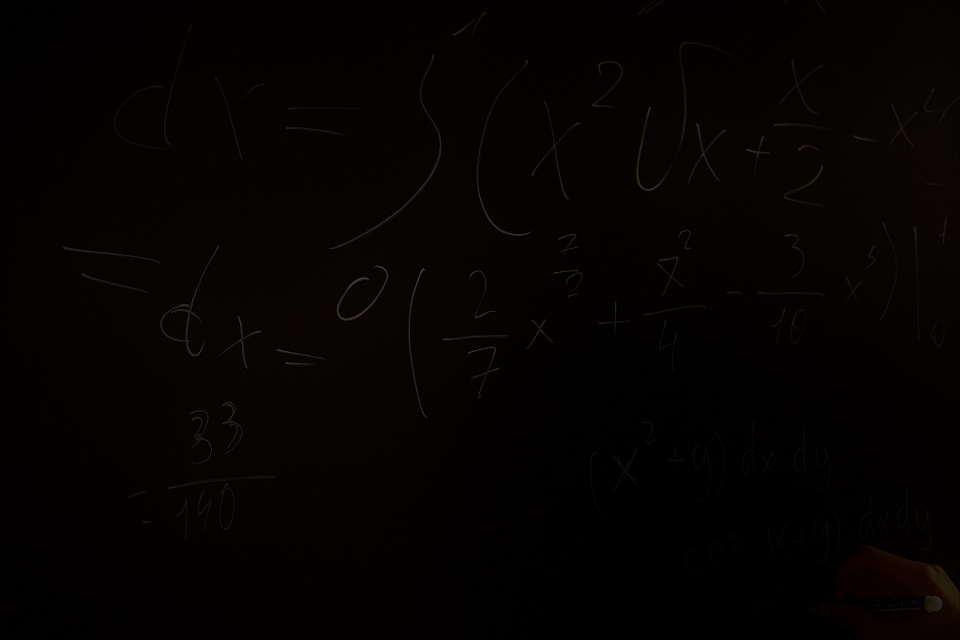 dx = ∫₀¹ (x² √x + x/2 - x⁴
= dx = (2/7 x^(7/2) + x²/4 - 3/10 x⁵)|₀¹
= 33/140
(x² + y) dx dy
(x+y) dxdy